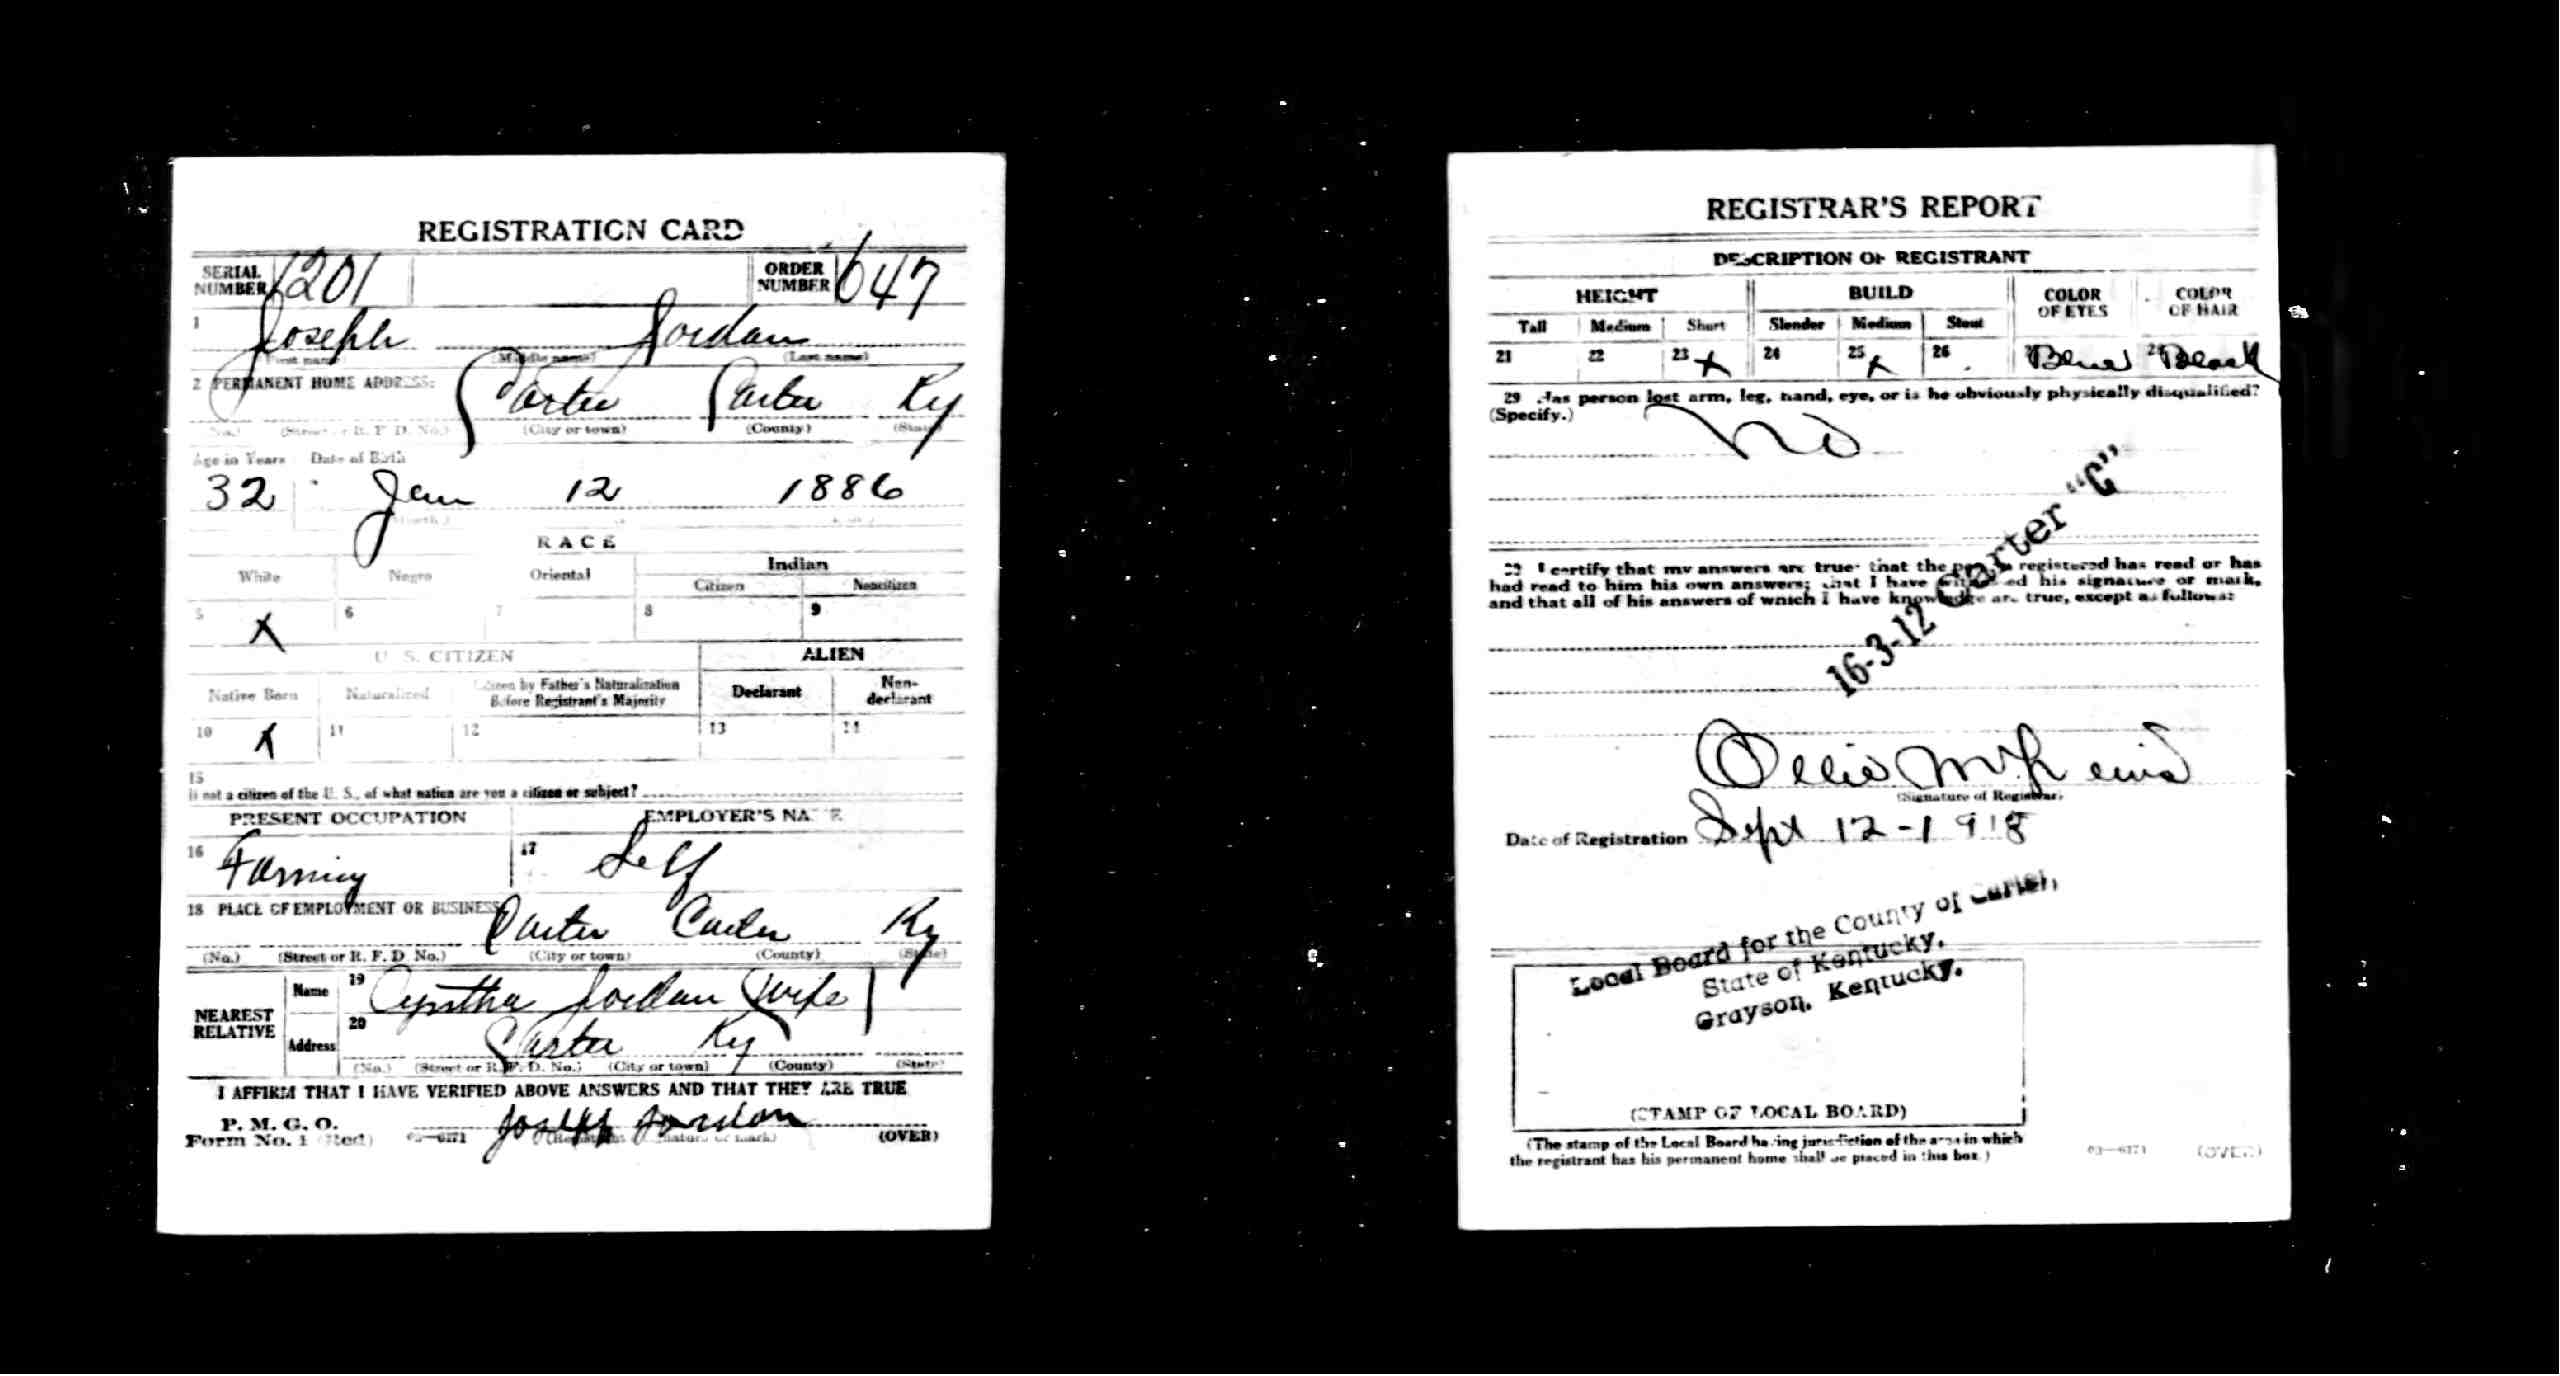 REGISTRATION CARD
SERIAL NUMBER 1201 ORDER NUMBER 647
1 Joseph Jordan
(First name) (Middle name) (Last name)
2 PERMANENT HOME ADDRESS: Carter Carter Ky
(No.) (Street or R. F. D. No.) (City or town) (County) (State)
Age in Years Date of Birth
32 Jan 12 1886
(Month.)
RACE
White Negro Oriental Indian
Citizen Noncitizen
5 X 6 7 8 9
U. S. CITIZEN ALIEN
Native Born Naturalized Citizen by Father's Naturalization Before Registrant's Majority Declarant Non-declarant
10 X 11 12 13 14
15
If not a citizen of the U. S., of what nation are you a citizen or subject?
PRESENT OCCUPATION EMPLOYER'S NAME
16 Farming 17 Self
18 PLACE OF EMPLOYMENT OR BUSINESS: Carter Carter Ky
(No.) (Street or R. F. D. No.) (City or town) (County) (State)
NEAREST RELATIVE Name 19 Cyntha Jordan (wife)
Address 20 Carter Ky
(No.) (Street or R. F. D. No.) (City or town) (County) (State)
I AFFIRM THAT I HAVE VERIFIED ABOVE ANSWERS AND THAT THEY ARE TRUE
P. M. G. O.
Form No. 1 (Red) 03—6171 Joseph Jordon (OVER)
(Registrant's signature or mark)
REGISTRAR'S REPORT
DESCRIPTION OF REGISTRANT
HEIGHT BUILD COLOR OF EYES COLOR OF HAIR
Tall Medium Short Slender Medium Stout
21 22 23 X 24 25 X 26 27 Blue 28 Black
29 Has person lost arm, leg, hand, eye, or is he obviously physically disqualified?
(Specify.) no
I certify that my answers are true; that the person registered has read or has
had read to him his own answers; that I have witnessed his signature or mark,
and that all of his answers of which I have knowledge are true, except as follows:
16-3-12 Carter "C"
Ollie
(Signature of Registrar)
Date of Registration Sept 12-1918
Local Board for the County of Carter,
State of Kentucky.
Grayson, Kentucky.
(STAMP OF LOCAL BOARD)
(The stamp of the Local Board having jurisdiction of the area in which
the registrant has his permanent home shall be placed in this box.)
03—6171 (OVER)